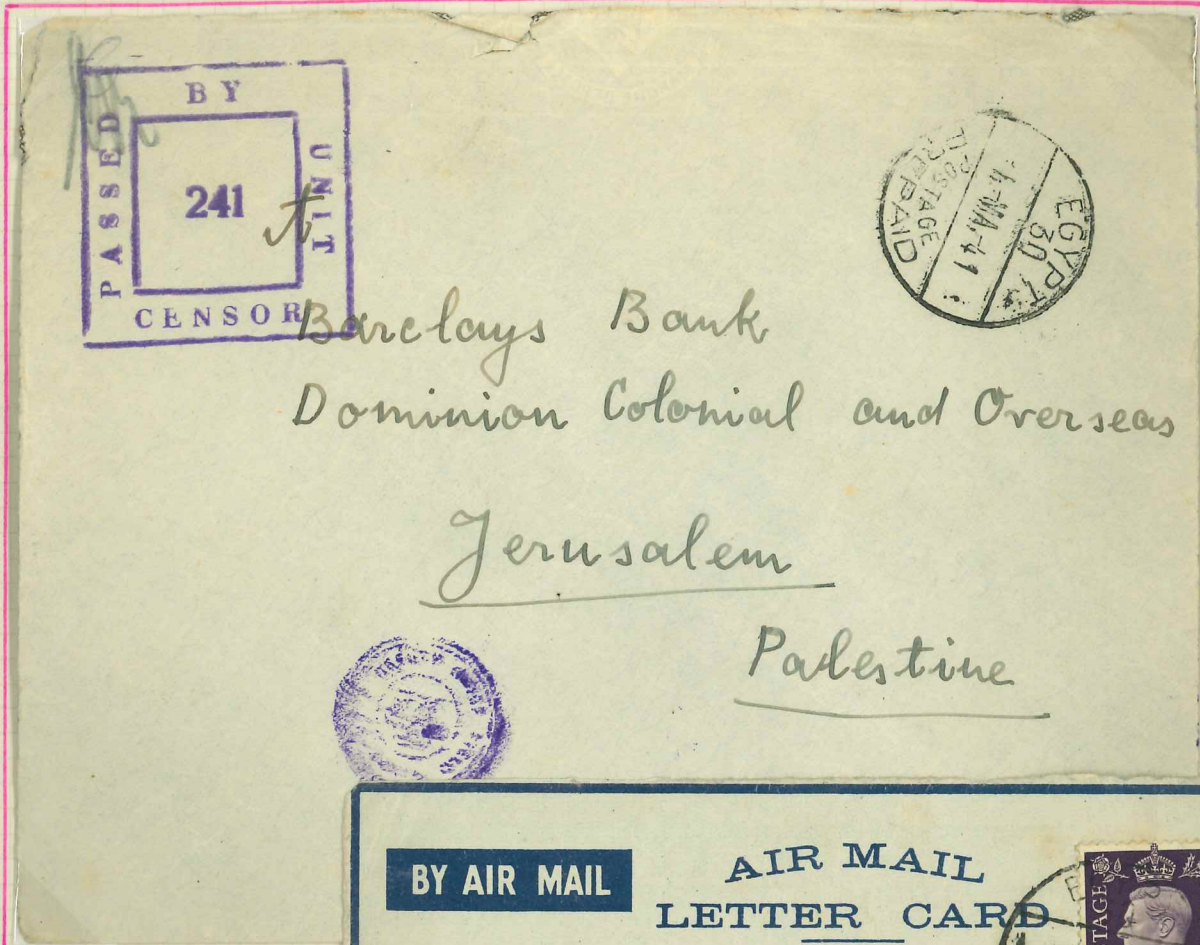 PASSED BY UNIT CENSOR
241
EGYPT
30
POSTAGE
PREPAID
Barclays Bank
Dominion Colonial and Overseas
Jerusalem
Palestine
BY AIR MAIL
AIR MAIL
LETTER CARD
TAGE